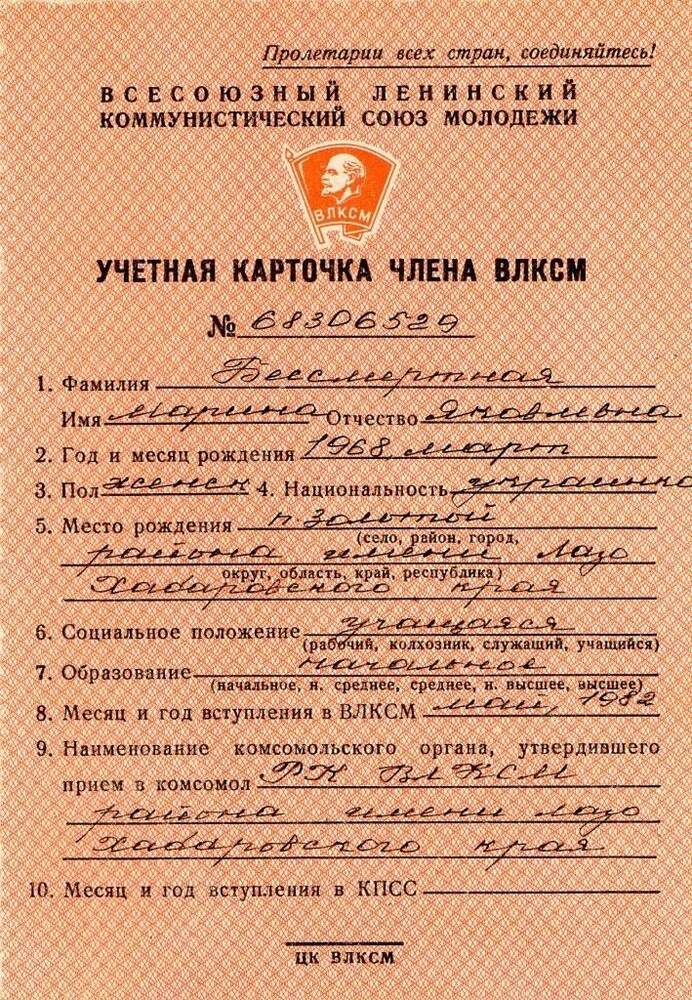 Пролетарии всех стран, соединяйтесь!
ВСЕСОЮЗНЫЙ ЛЕНИНСКИЙ
КОММУНИСТИЧЕСКИЙ СОЮЗ МОЛОДЕЖИ
ВЛКСМ
УЧЕТНАЯ КАРТОЧКА ЧЛЕНА ВЛКСМ
№ 68306529
1. Фамилия Бессмертная
Имя Марина Отчество Яковлевна
2. Год и месяц рождения 1968, март
3. Пол женск 4. Национальность украинка
5. Место рождения п. Золотой
(село, район, город,
района имени Лазо
округ, область, край, республика)
Хабаровского края
6. Социальное положение учащаяся
(рабочий, колхозник, служащий, учащийся)
7. Образование начальное
(начальное, н. среднее, среднее, н. высшее, высшее)
8. Месяц и год вступления в ВЛКСМ май, 1982
9. Наименование комсомольского органа, утвердившего
прием в комсомол РК ВЛКСМ
района имени Лазо
Хабаровского края
10. Месяц и год вступления в КПСС
ЦК ВЛКСМ